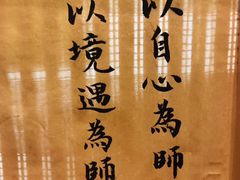 以自心為師
以境遇為師